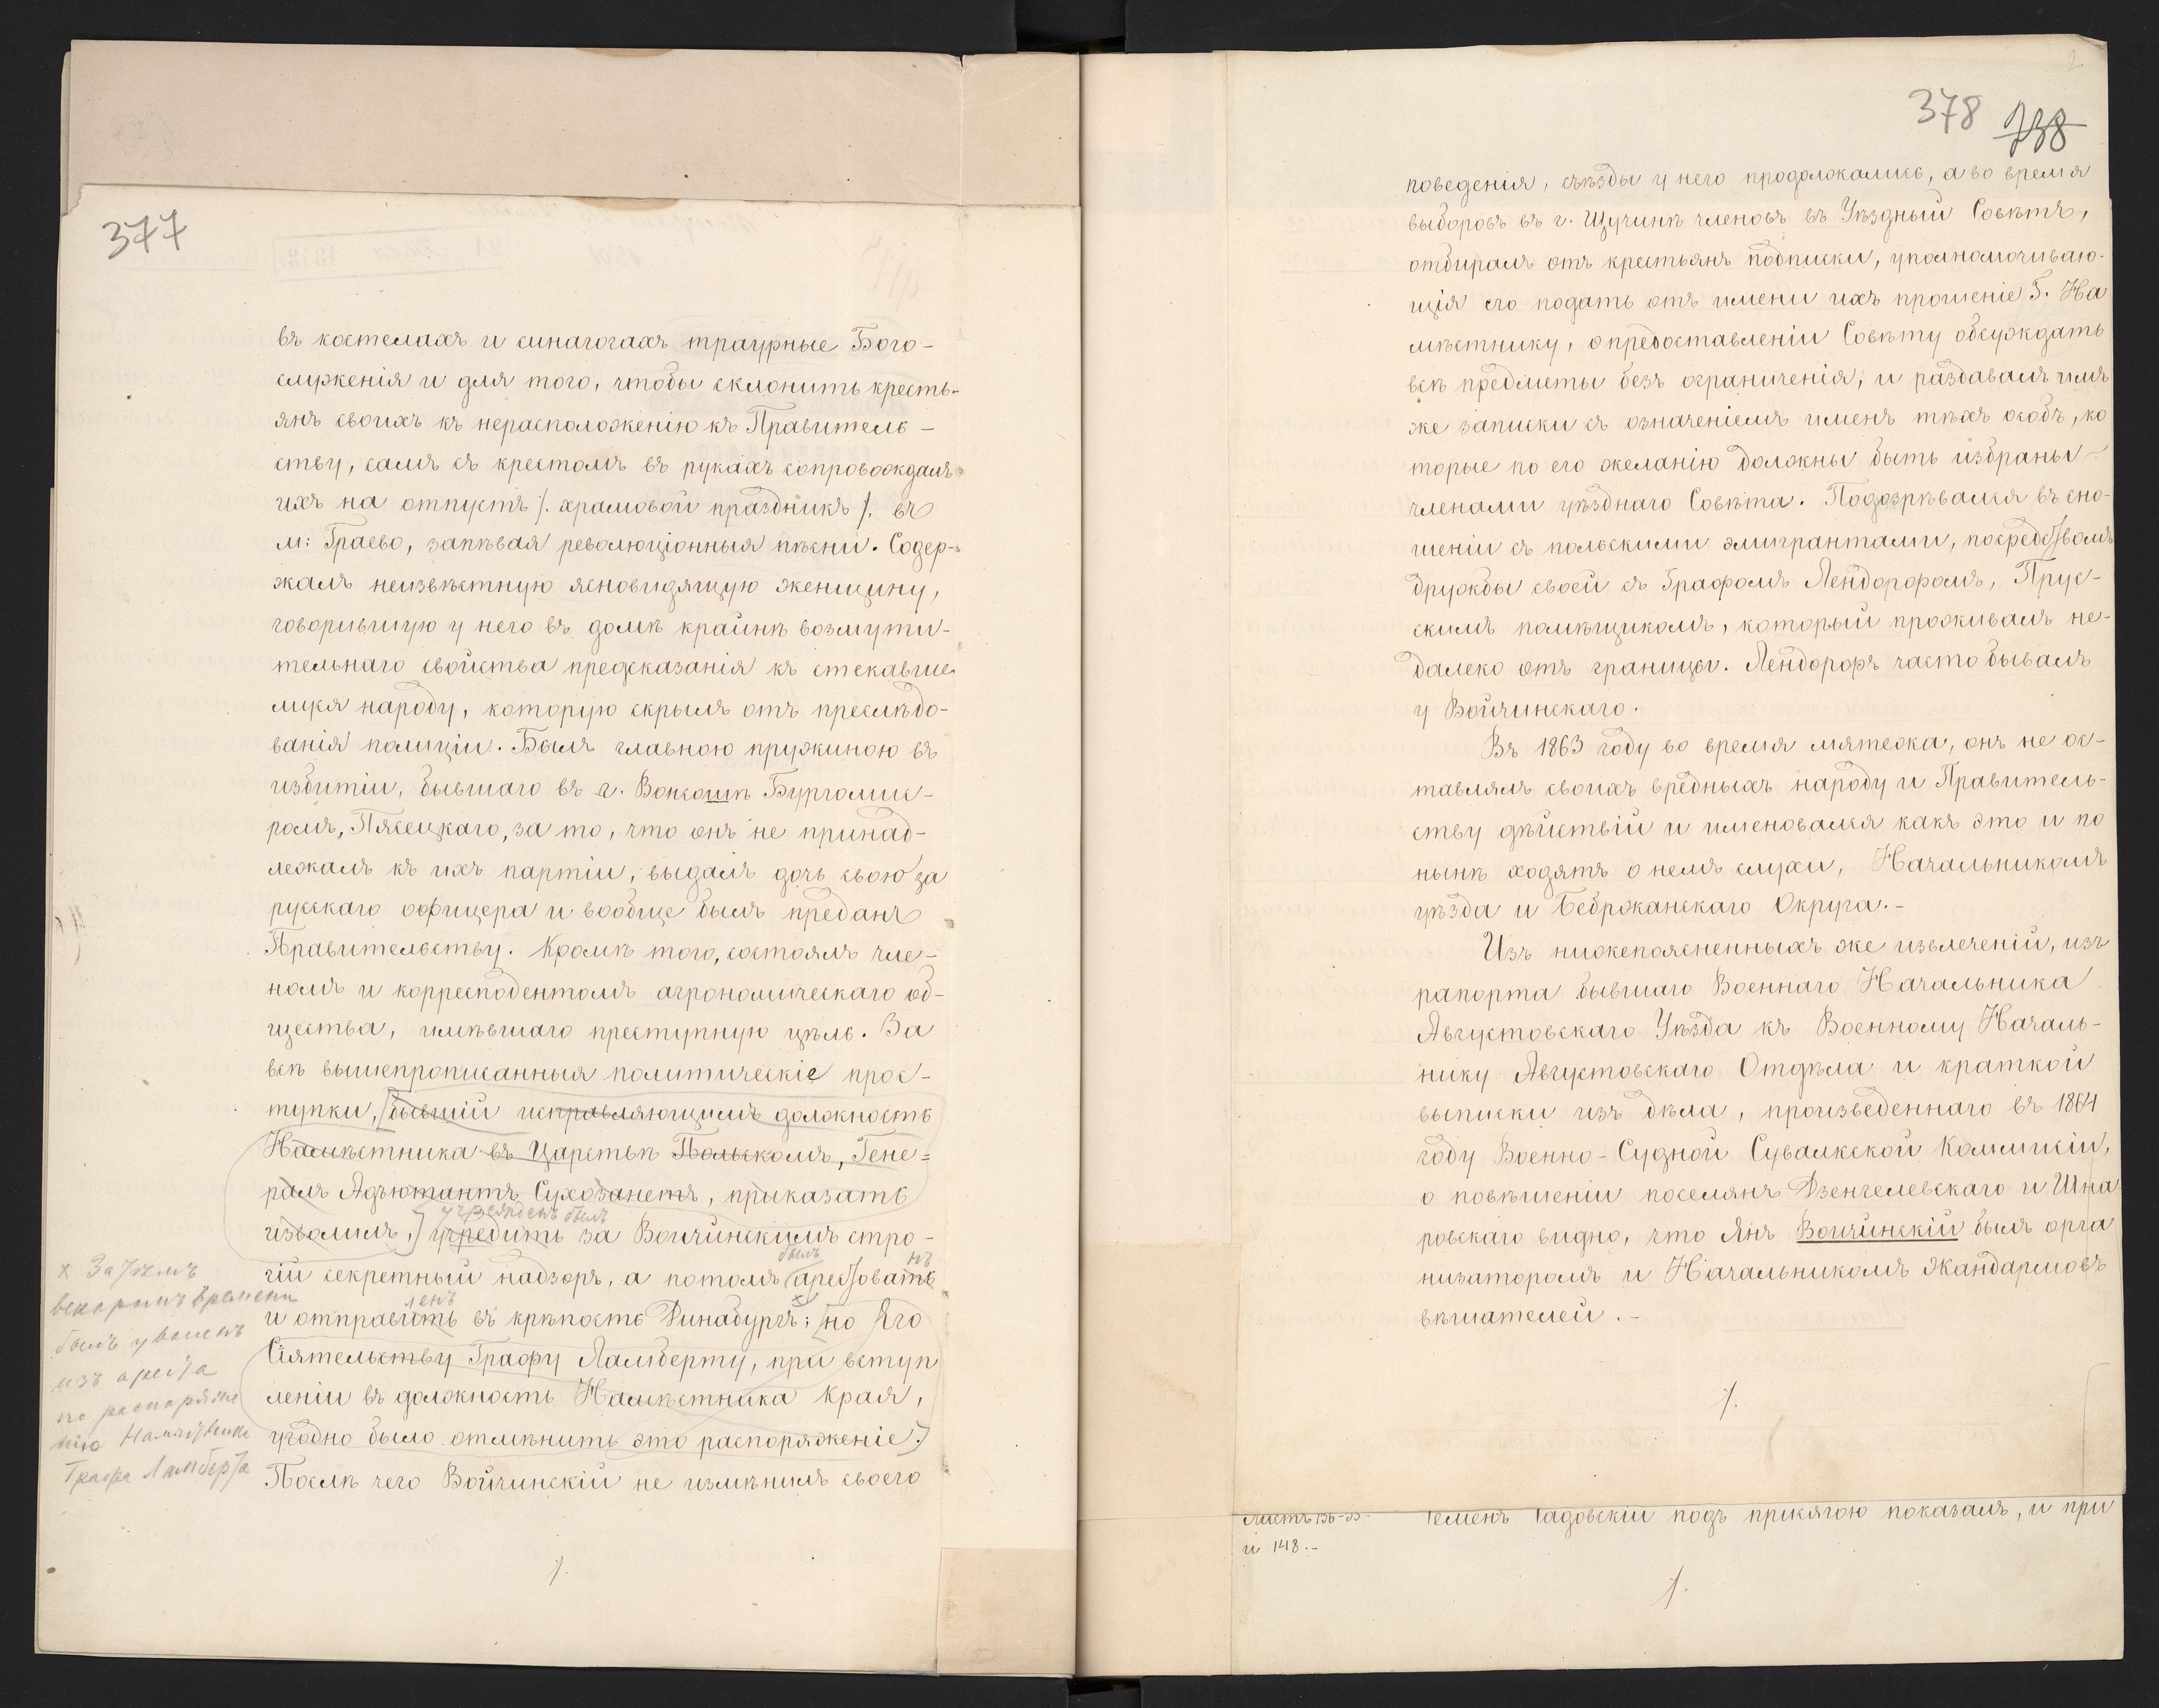 377
въ костелахъ и синагогахъ траурные Бого-
служенія и для того, чтобы склонить кресть-
янъ своихъ къ нерасположенію къ Правитель-
ству, самъ съ крестомъ въ рукахъ сопровождалъ
ихъ на отпустъ /. храмовой праздникъ /. въ
м: Граево, запѣвая революціонныя пѣсни. Содер-
жалъ неизвѣстную ясновидящую женщину,
говорившую у него въ домѣ крайнѣ возмути-
тельнаго свойства предсказанія къ стекавше
муся народу, которую скрылъ отъ преслѣдо-
ванія полиціи. Былъ главною пружиною въ
избитіи, бывшаго въ г. Вонсошѣ Бургомис-
ромъ, Пясецкаго, за то, что онъ не принад-
лежалъ къ ихъ партіи, выдалъ дочь свою за
русскаго оофицера и вообще былъ преданъ
Правительству. Кромѣ того, состоялъ чле-
номъ и корресподентомъ агрономическаго об-
щества, имѣвшаго преступную цѣль. За
всѣ вышепрописанныя политическіе прос-
тупки, [бывшій исправляющимъ должность
Намѣстника въ Царствѣ Польскомъ, Гене=
ралъ Адъютантъ Сухозанетъ, приказать
учрежденъ былъ
изволилъ,] учредить за Войчинскимъ стро-
былъ нъ
гій секретный надзоръ, а потомъ арестовать
ленъ х
и отправить въ крѣпость Динабургъ; [но Его
Сіятельству Графу Ламберту, при вступ
леніи въ должность Намѣстника Края,
угодно было отмѣнить это распоряженіе.]
Послѣ чего Войчинскій не измѣнилъ своего
х Затѣмъ
вскорѣ времени
былъ уволенъ
изъ ареста
по распоряже
нію Намѣстника
Графа Ламберта
/.
2
378 738
поведенія, съѣзды у него продолжались, а во время
выборовъ въ г. Щучинѣ членовъ въ Уѣздный Совѣтъ,
отбиралъ отъ крестьянъ подписки, уполномочиваю-
щія его подать отъ имени ихъ прошеніе Г. На
мѣстнику, о предоставленіи Совѣту обсуждать
всѣ предметы безъ ограниченія, и раздавалъ имъ
же записки съ означеніемъ именъ тѣхъ особъ, ко
торые по его желанію должны быть избраны
членами уѣзднаго Совѣта. Подозрѣвался въ сно-
шеніи съ польскими эмигрантами, посредствомъ
дружбы своей съ Графомъ Лендорофомъ, Прус-
скимъ помѣщикомъ, который проживалъ не-
далеко отъ границы. Лендорофъ часто бывалъ
у Войчинскаго.
Въ 1863 году во время мятежа, онъ не ос-
тавлялъ своихъ вредныхъ народу и Правитель-
ству дѣйствій и именовался какъ это и по
нынѣ ходятъ о немъ слухи, Начальникомъ
уѣзда и Бебржанскаго Округа.-
Изъ нижепоясненныхъ же извлеченій, изъ
рапорта бывшаго Военнаго Начальника
Августовскаго Уѣзда къ Военному Началь-
нику Августовскаго Отдѣла и краткой
выписки изъ дѣла, произведеннаго въ 1864
году Военно-Судной Сувалкской Коммисіи,
о повѣшеніи поселянъ Дзенгелевскаго и Шна
ровскаго видно, что Янъ Войчинскій былъ орга
низаторомъ и Начальникомъ Жандармовъ
вѣшателей.-
/.
и 148.- Семенъ Садовскій подъ присягою показалъ, и при
/.